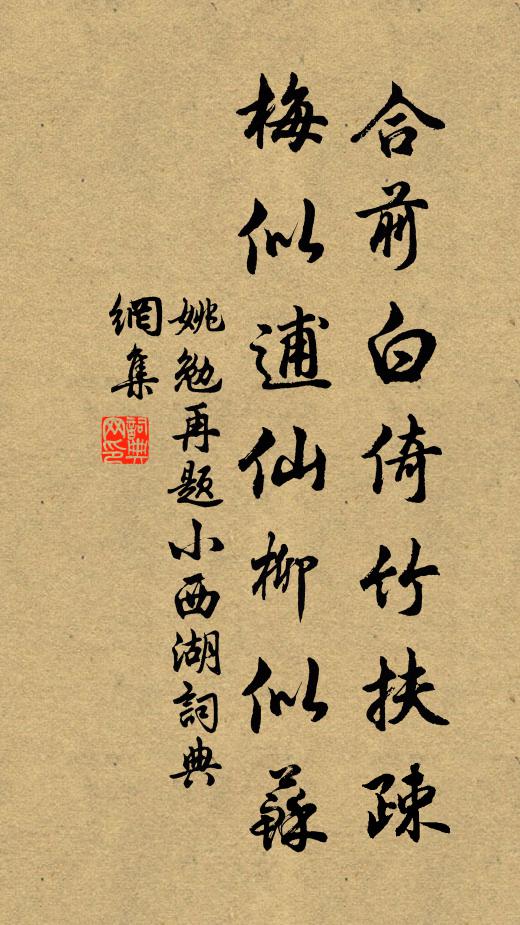 合前白倚竹扶疎
梅似逋仙柳似蘇
姚勉再题小西湖詞典
網集
詞典網印